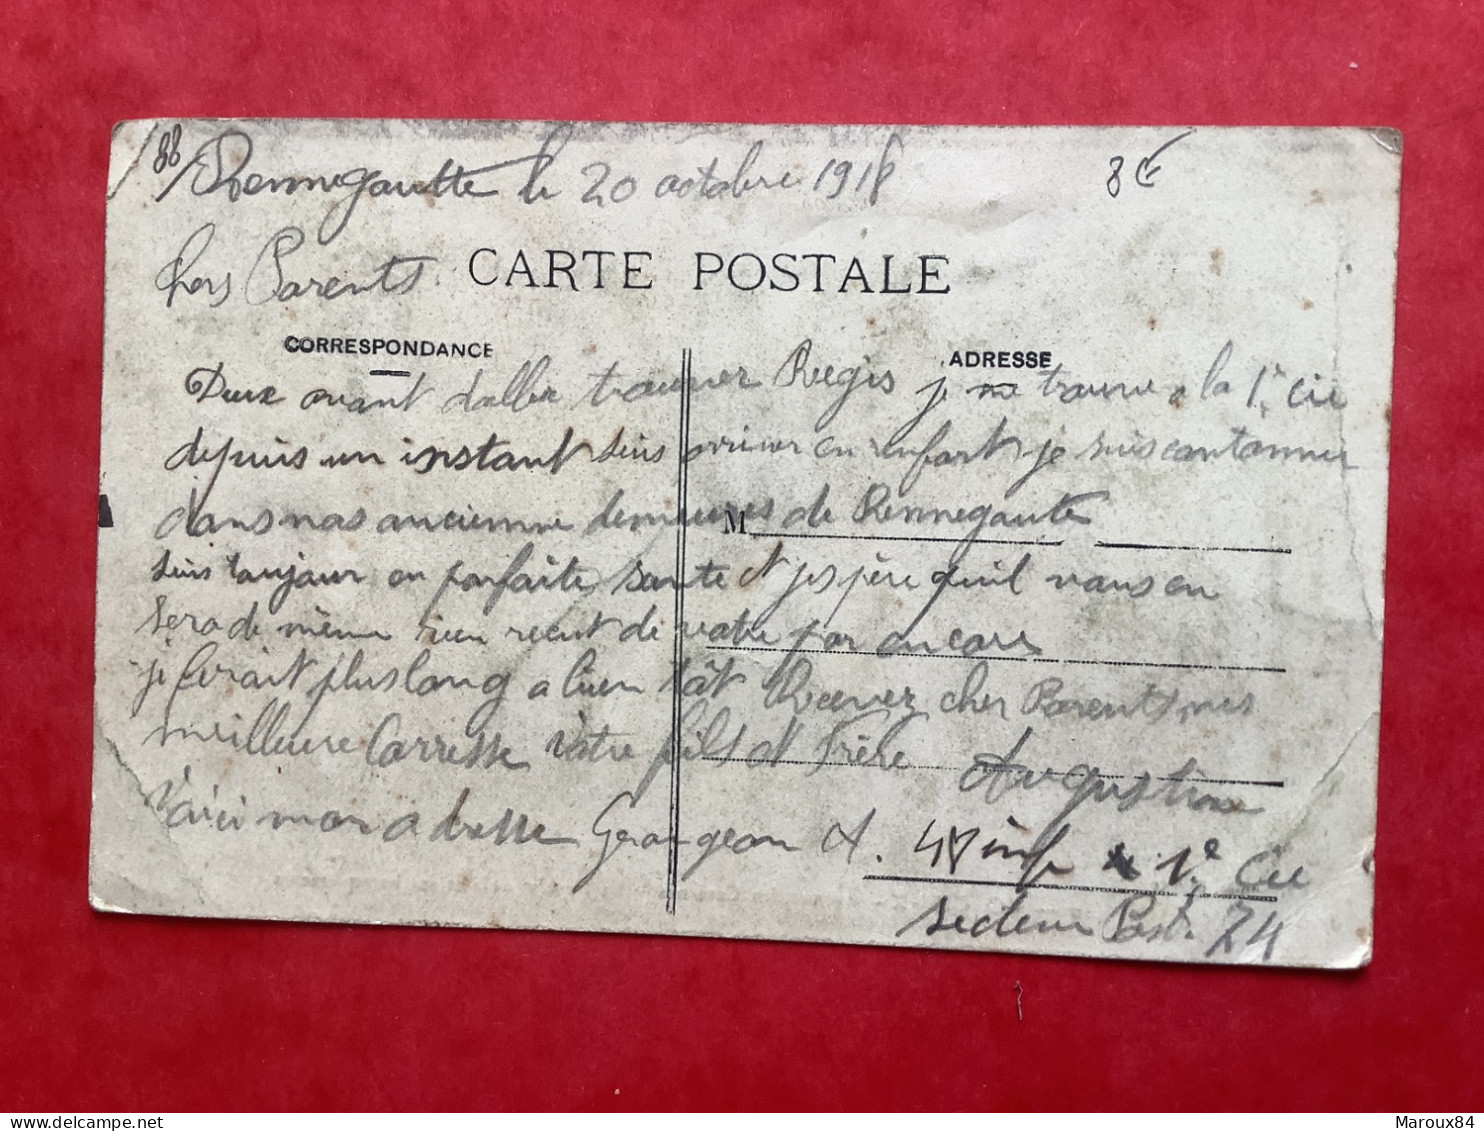 88
Rennegautte le 20 octobre 1918
8€
Chers Parents
CARTE POSTALE
CORRESPONDANCE
ADRESSE
Deux avant d'aller trouver Regis je me trouve a la 1e Cie
depuis un instant suis arriver en renfort je suis cantonner
dans nos ancienne demeures de Rennegautte
M
suis toujour en parfaite sante et j'espère qu'il vous en
sera de même rien recut de votre par encore
je ferait plus long a bien tôt Recevez cher Parents mes
meilleure Carresse Votre fils et Frère Augustin
Voici mon adresse Gerangeon A. 4e inf 1e Cie
secteur Post. 74
Maroux84